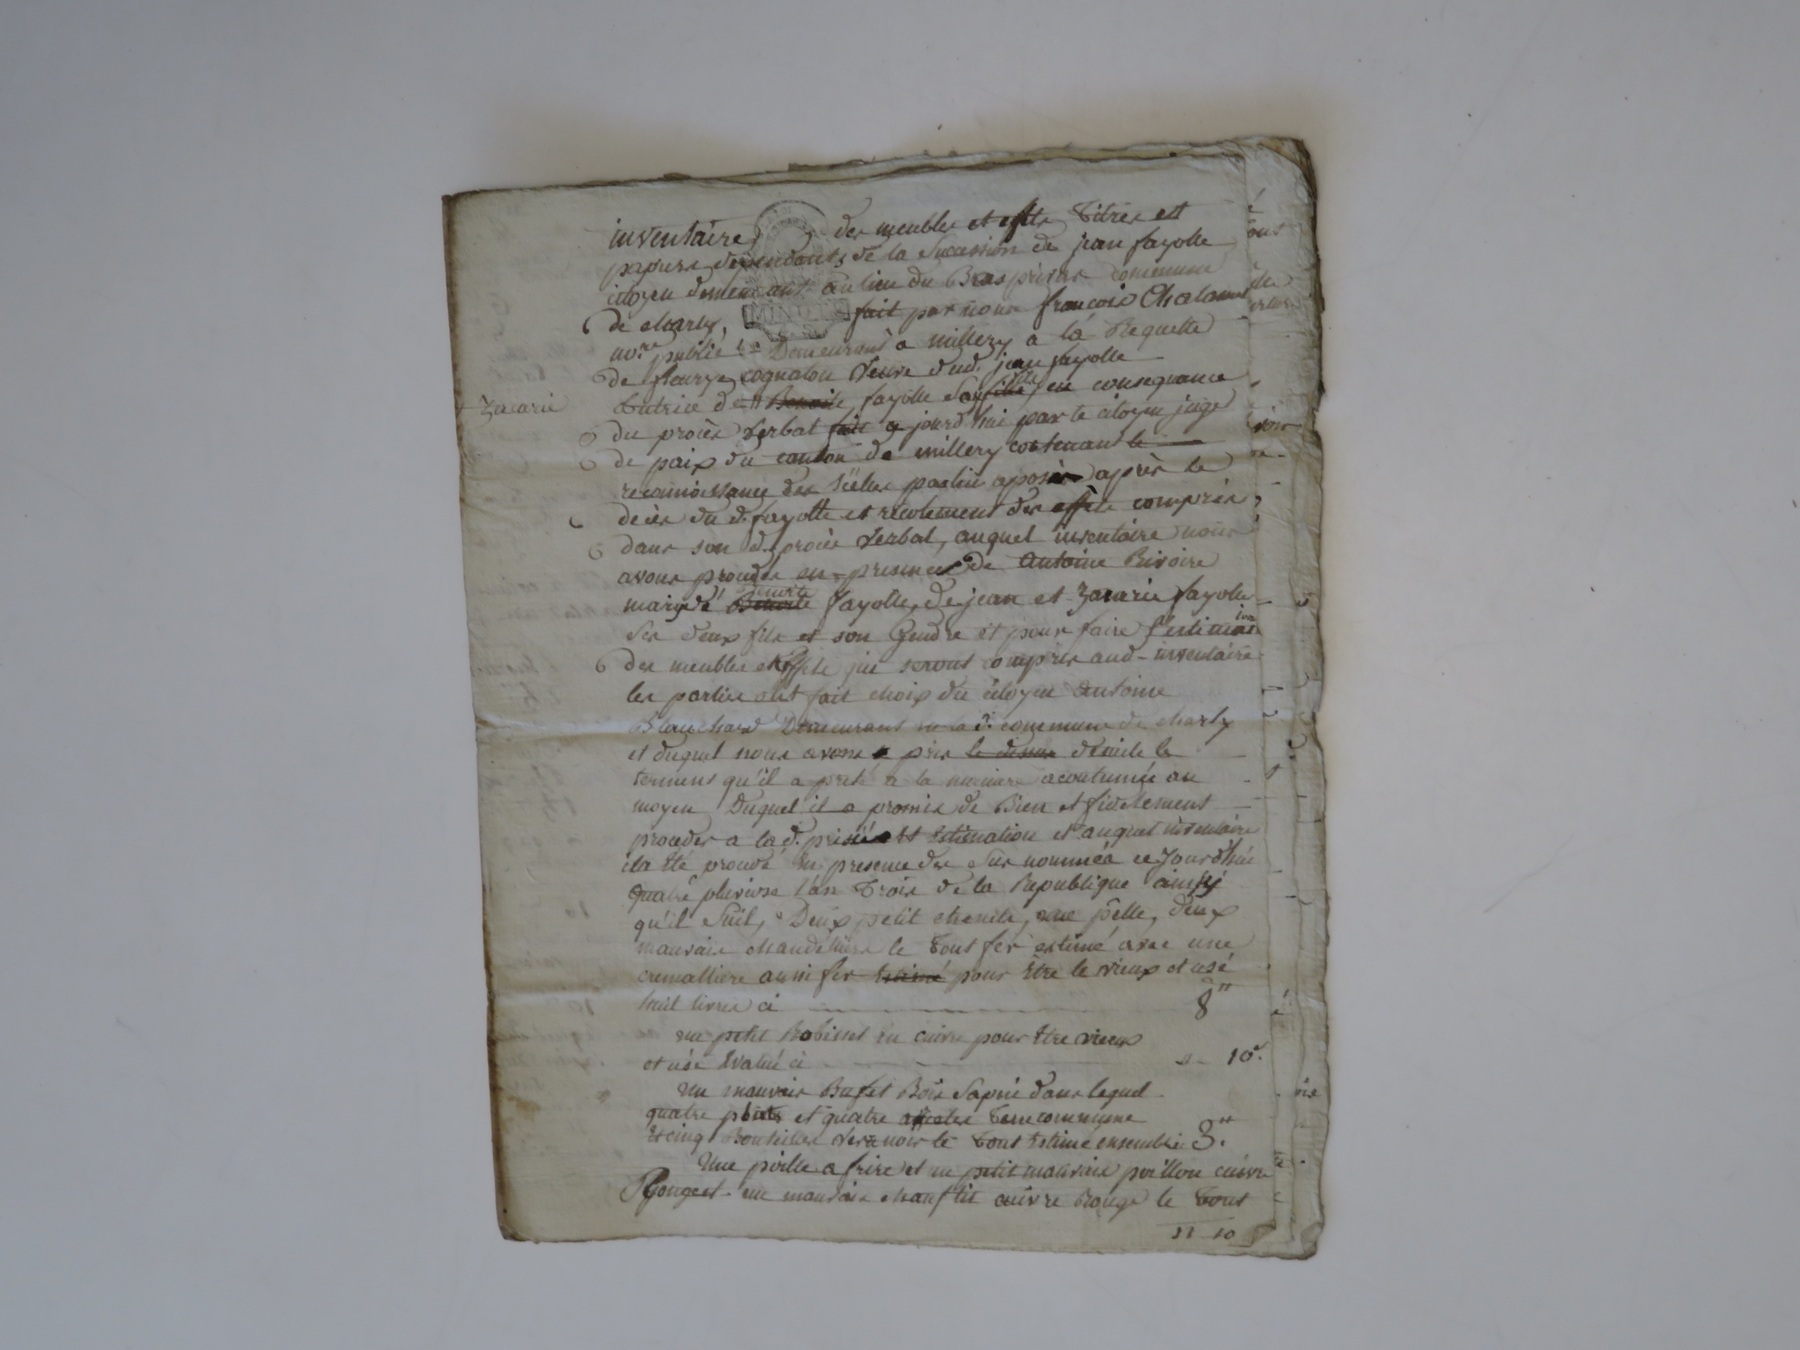 inventaire des meubles et effets titres et
papiers dependants de la Succession de jean fayolle
citoyen demeurant au lieu du Bras commune
de charly, fait par nous françois Chalamel
MINUTE
no.re public Demeurant a millery a la Requette
de fleurye cognatou veuve dud. jean fayolle
zacarie
tutrice de Benoite fayolle fille, en consequance
du procès verbal fait ajourd'hui par le citoyen juge
de paix du canton de millery contenant le
reconnoissance des scèlés par lui aposés après le
décès du d. fayolle et recolement des effets compris
dans son d. procès verbal, auquel inventaire nous
avons procedé en presence de Antoine Rivoire
mary de Benoite Benoite fayolle, de jean et zacarie fayolle
ses deux fils et son Gendre et pour faire l'estimation
des meubles et effets qui seront compris aud. inventaire
les parties ont fait choix du citoyen Antoine
Blanchard Demeurant en la d. commune de charly
et duquel nous avons pris le de suite le
serment qu'il a preté a la maniere acoutumée au
moyen Duquel il a promis de Bien et fidelement
proceder a la d. prisé et Estimation et auquel inventaire
il a Eté procédé En presence des sus nommés ce Jourd'hui
quatre pluviose l'an Trois de la Republique ainsy
qu'il Suit, Deux petit chenets, une pelle, deux
mauvais chandelliers le tout fer estimé avec une
cremalliere aussi fer Estimé pour Etre le vieux et usé
huit livres ci 8"
un petit Robinet en cuivre pour Etre vieux
et usé Evalué ci 10s.
Un mauvais Bufet Bois Sapin dans lequel
quatre plats et quatre assietes terre commune
et cinq Bouteilles verre noir le tout Estimé ensemble 3"
Une poille a frire et un petit mauvais poillon cuivre
Rouge et un mauvais chauflit cuivre Rouge le tout
11 10